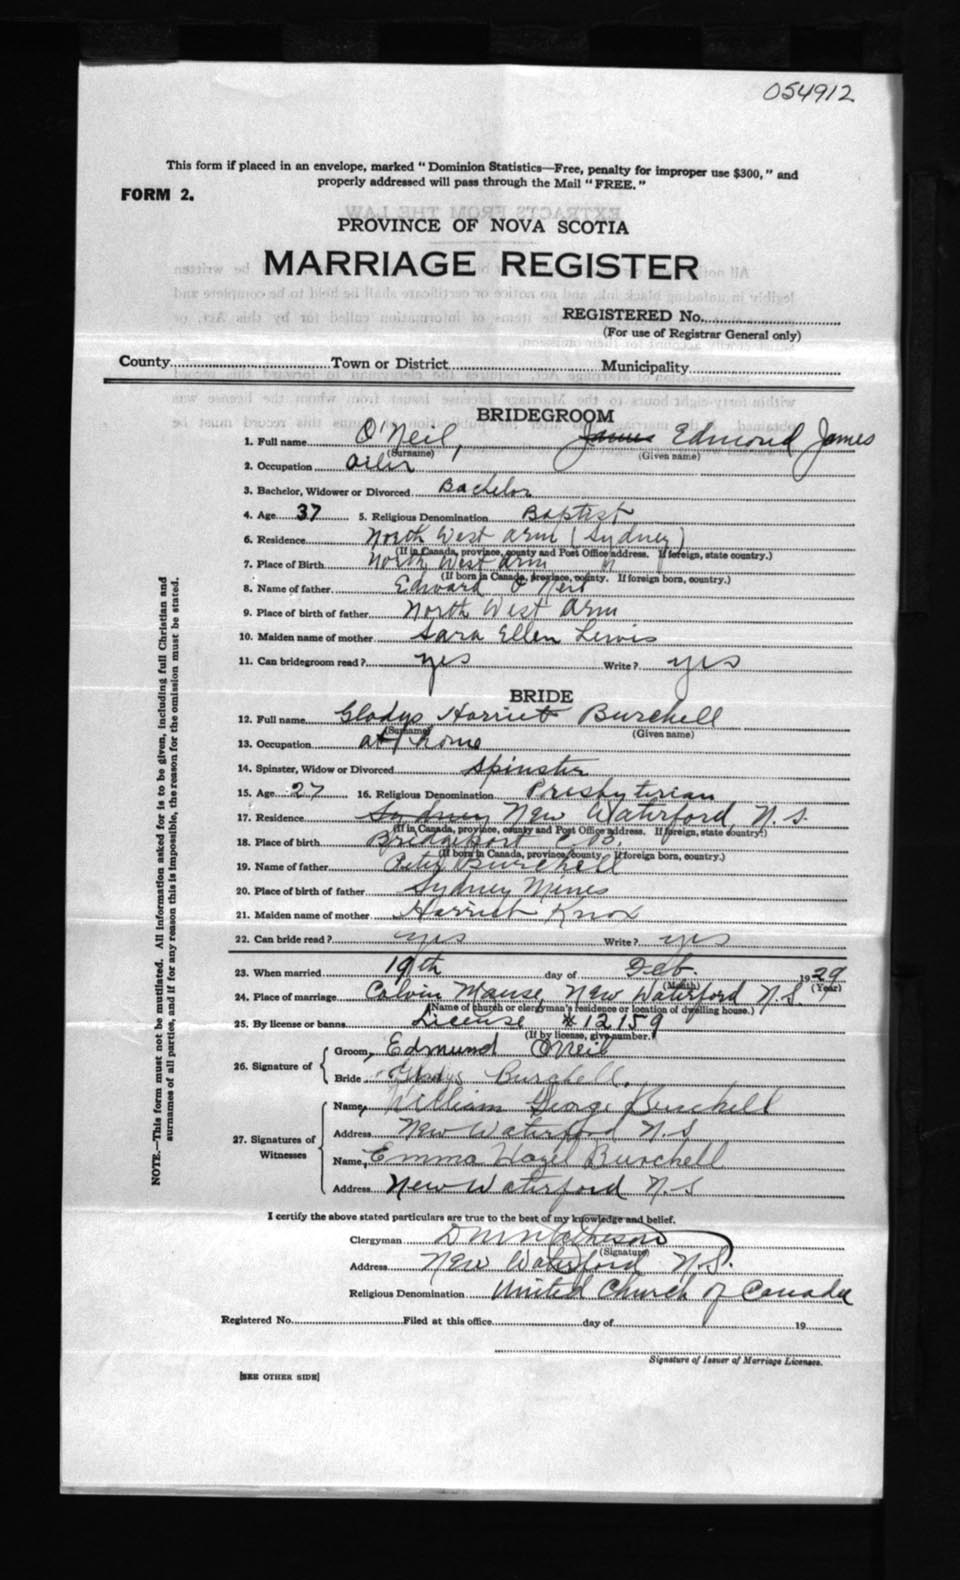 054912
This form if placed in an envelope, marked "Dominion Statistics—Free, penalty for improper use $300," and
properly addressed will pass through the Mail "FREE."
FORM 2.
PROVINCE OF NOVA SCOTIA
MARRIAGE REGISTER
REGISTERED No.
(For use of Registrar General only)
County Town or District Municipality
BRIDEGROOM
1. Full name O'Neil, James Edmond James
(Surname) (Given name)
2. Occupation Oiler
3. Bachelor, Widower or Divorced Bachelor
4. Age 37 5. Religious Denomination Baptist
6. Residence North West Arm (Sydney)
(If in Canada, province, county and Post Office address. If foreign, state country.)
7. Place of Birth North West Arm "
(If born in Canada, province, county. If foreign born, country.)
8. Name of father Edward O'Neil
9. Place of birth of father North West Arm
10. Maiden name of mother Sara Ellen Lewis
11. Can bridegroom read? yes Write? yes
BRIDE
12. Full name Gladys Harriet Burchell
(Surname) (Given name)
13. Occupation at home
14. Spinster, Widow or Divorced Spinster
15. Age 27 16. Religious Denomination Presbyterian
17. Residence Sydney New Waterford, N. S.
(If in Canada, province, county and Post Office address. If foreign, state country.)
18. Place of birth Bridgeport C. B.
(If born in Canada, province, county. If foreign born, country.)
19. Name of father Peter Burchell
20. Place of birth of father Sydney Mines
21. Maiden name of mother Harriet Knox
22. Can bride read? yes Write? yes
23. When married 19th day of Feb. 1929
(Month) (Year)
24. Place of marriage Calvin Manse, New Waterford N. S.
(Name of church or clergyman's residence or location of dwelling house.)
25. By license or banns License #12159
(If by license, give number.)
26. Signature of Groom, Edmund O'Neil
Bride Gladys Burchell.
27. Signatures of Witnesses
Name, William George Burchell
Address New Waterford N.S
Name, Emma Hazel Burchell
Address New Waterford N.S
I certify the above stated particulars are true to the best of my knowledge and belief.
Clergyman
(Signature)
Address New Waterford N.S.
Religious Denomination United Church of Canada
Registered No. Filed at this office day of 19
Signature of Issuer of Marriage Licenses.
[SEE OTHER SIDE]
NOTE.—This form must not be mutilated. All information asked for is to be given, including full Christian and
surnames of all parties, and if for any reason this is impossible, the reason for the omission must be stated.